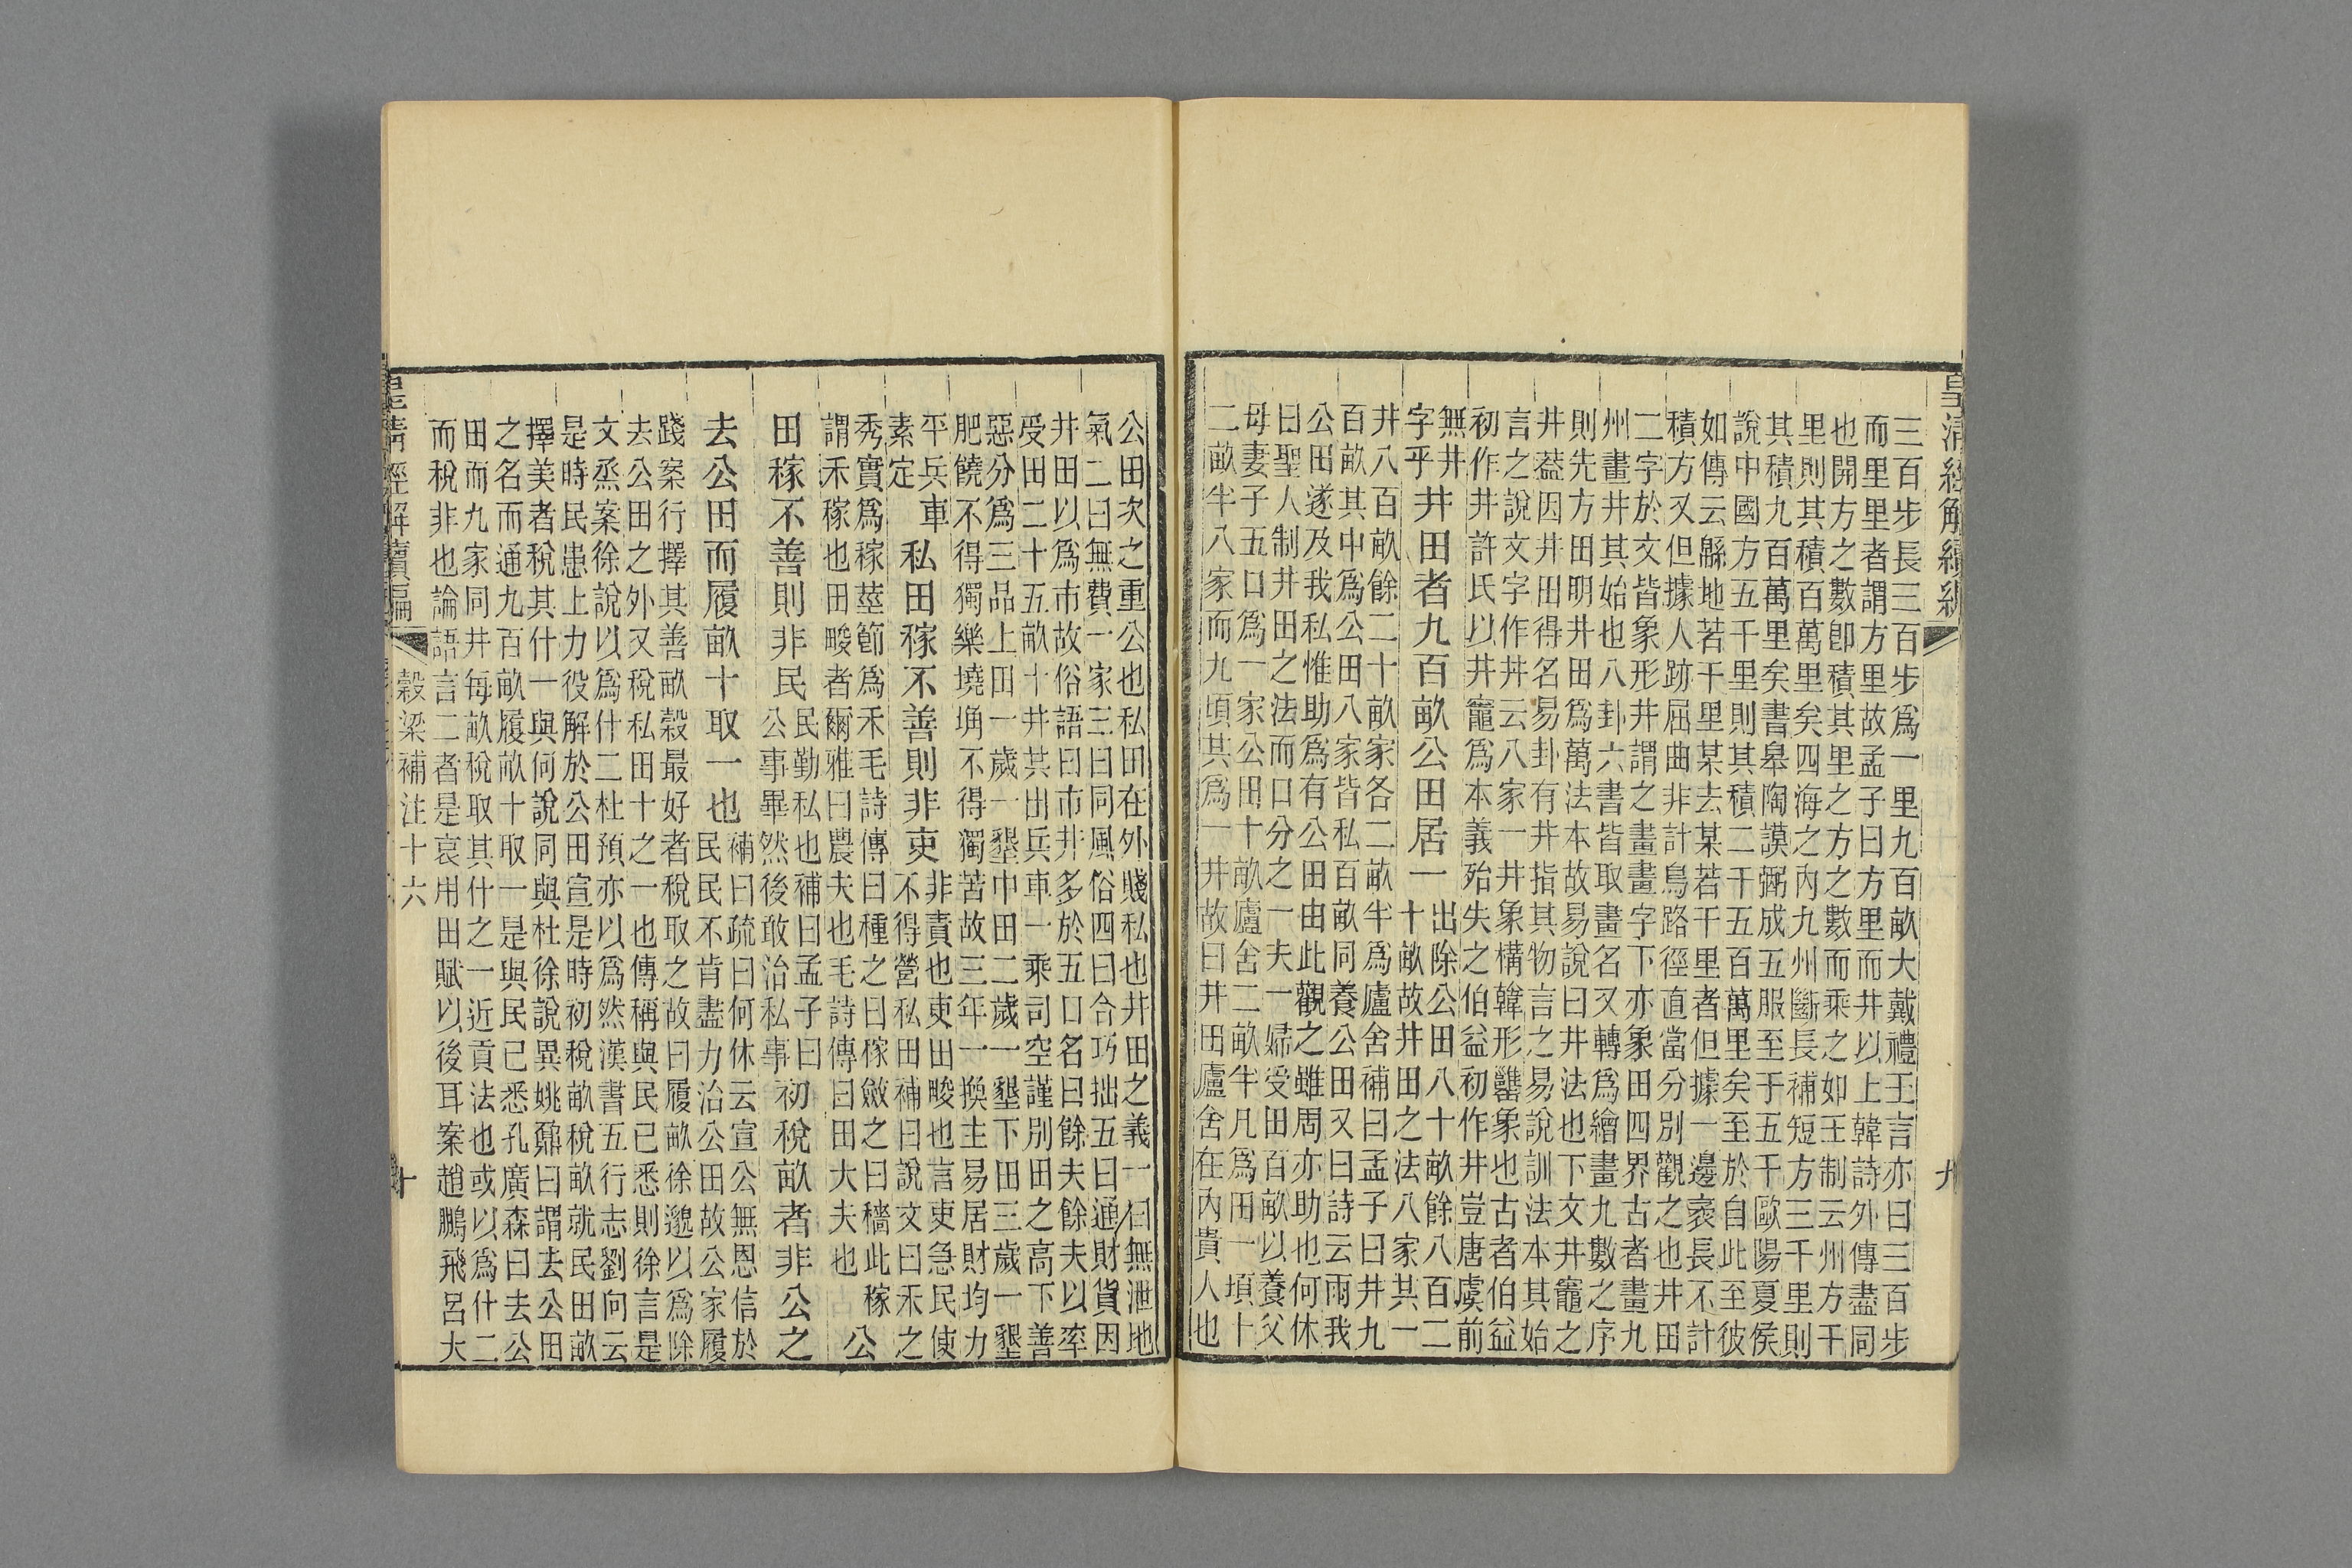 皇清經解續編
九
三百步長三百步爲一里九百畝大戴禮王言亦曰三百步
而里里者謂方里故孟子曰方里而井以上韓詩外傳盡同
也開方之數卽積其里之方之數而乘之如王制云州方千
里則其積百萬里矣四海之內九州斷長補短方三千里則
其積九百萬里矣書皋陶謨弼成五服至于五千歐陽夏侯
說中國方五千里則其積二千五百萬里矣至於自此至彼
如傳云緜地若干里某去某若干里者但據一邊袤長不計
積方又但據人跡屈曲非計鳥路徑直當分別觀之也井田
二字於文皆象形井謂之畫畫字下亦象田四界古者畫九
州畫井其始也八卦六書皆取畫名又轉爲繪畫九數之序
則先方田明井田爲萬法本故易說曰井法也下文井竈之
井葢因井田得名易卦有井指其物言之易說訓法本其始
言之說文字作丼云八家一井象構韓形䍌象也古者伯益
初作井許氏以井竈爲本義殆失之伯益初作井豈唐虞前
無井
字乎
井田者九百畝公田居一
出除公田八十畝餘八百二
十畝故井田之法八家其一
井八百畝餘二十畝家各二畝半爲廬舍補曰孟子曰井九
百畝其中爲公田八家皆私百畝同養公田又曰詩云雨我
公田遂及我私惟助爲有公田由此觀之雖周亦助也何休
曰聖人制井田之法而口分之一夫一婦受田百畝以養父
母妻子五口爲一家公田十畝廬舍二畝半凡爲田一頃十
二畝半八家而九頃其爲一井故曰井田廬舍在內貴人也
公田次之重公也私田在外賤私也井田之義一曰無泄地
氣二曰無費一家三曰同風俗四曰合巧拙五曰通財貨因
井田以爲市故俗語曰市井多於五口名曰餘夫餘夫以率
受田二十五畝十井其出兵車一乘司空謹別田之高下善
惡分爲三品上田一歲一墾中田二歲一墾下田三歲一墾
肥饒不得獨樂墝埆不得獨苦故三年一換主易居財均力
平兵車
素定
私田稼不善則非吏
非責也吏田畯也言吏急民使
不得營私田補曰說文曰禾之
秀實爲稼莖節爲禾毛詩傳曰種之曰稼斂之曰穡此稼
謂禾稼也田畯者爾雅曰農夫也毛詩傳曰田大夫也
公
田稼不善則非民
民勤私也補曰孟子曰
公事畢然後敢治私事
初稅畝者非公之
去公田而履畝十取一也
補曰疏曰何休云宣公無恩信於
民民不肯盡力治公田故公家履
踐案行擇其善畝穀最好者稅取之故曰履畝徐邈以爲除
去公田之外又稅私田十之一也傳稱與民已悉則徐言是
文烝案徐說以爲什二杜預亦以爲然漢書五行志劉向云
是時民患上力役解於公田宣是時初稅畝稅畝就民田畝
擇美者稅其什一與何說同與杜徐說異姚鼐曰謂去公田
之名而通九百畝履畝十取一是與民已悉孔廣森曰去公
田而九家同井每畝稅取其什之一近貢法也或以爲什二
而稅非也論語言二者是哀用田賦以後耳案趙鵬飛呂大
皇清經解續編
穀梁補注十六
十